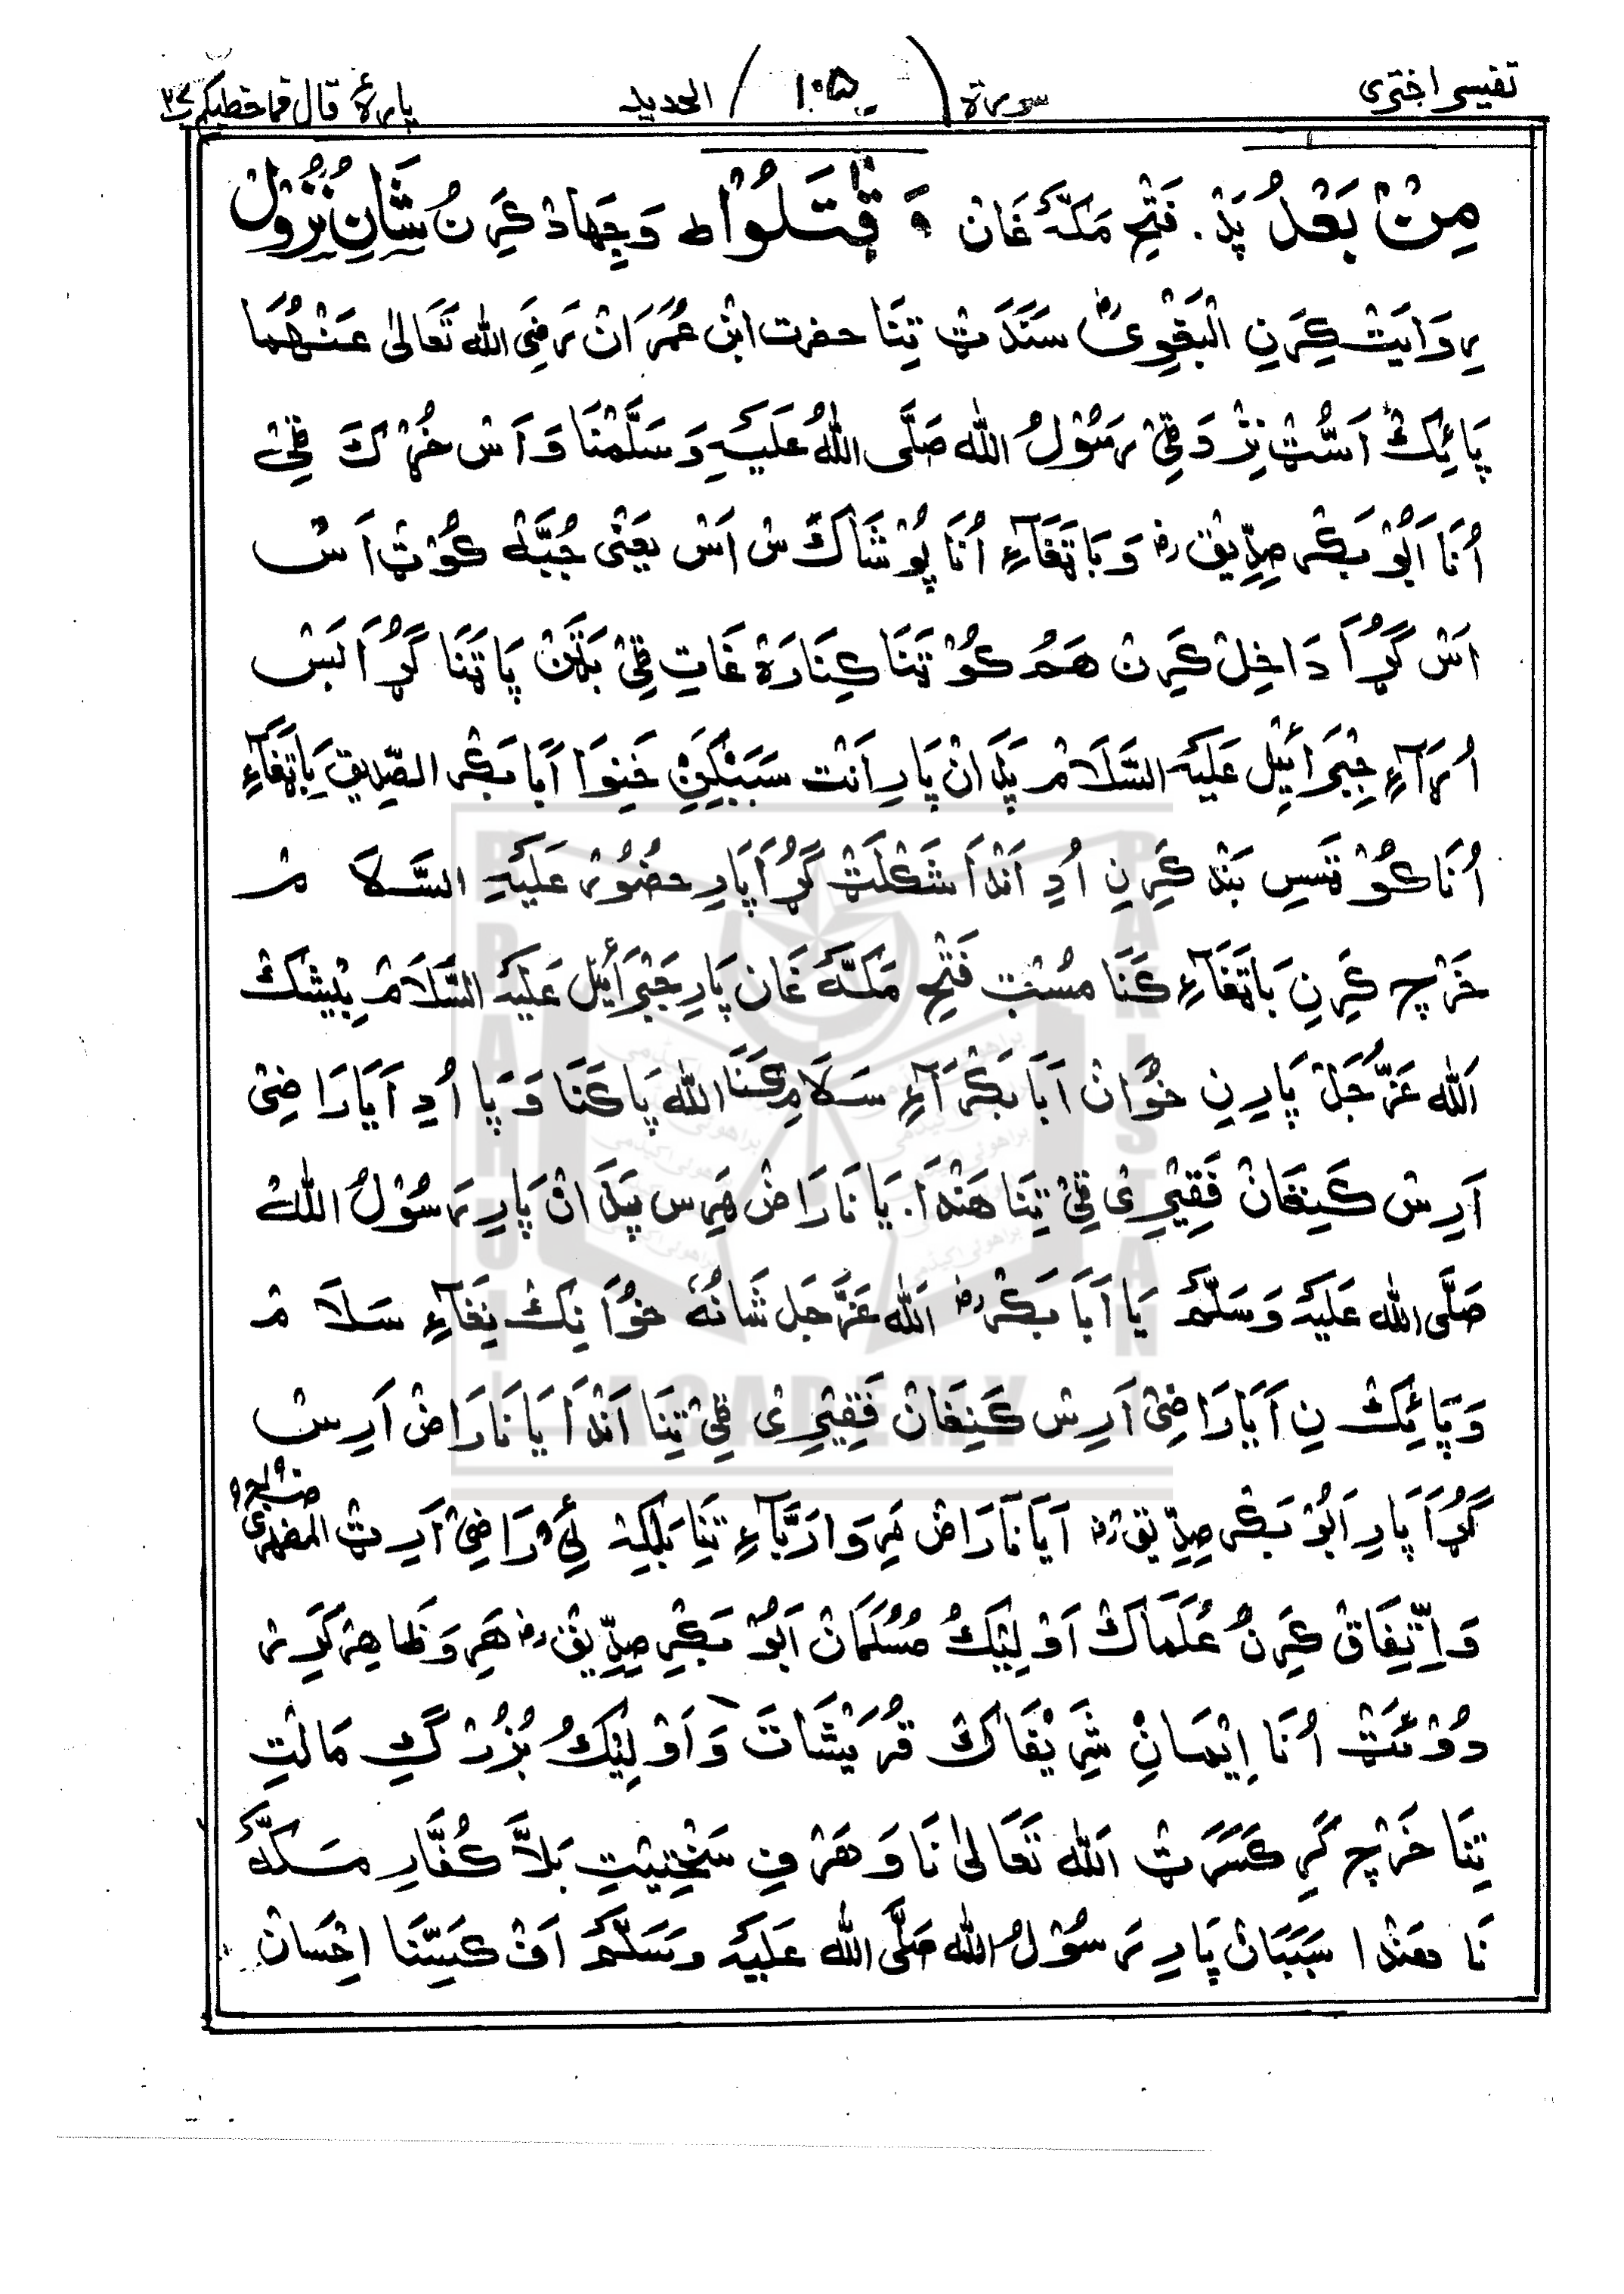 تفسیر اختری سورۃ ١٠٥ الحدید پارۂ قال فما خطبکم ٢٧
مِنْ بَعْدُ پَدْ. فَتْحِ مَكَّہَ غَانْ وَ قٰتَلُوْاط وَ جِهَادْ كَرِنُ شَانِ نُزُوْل
رِوَایَتْ كِرَنِ الْبَغَوِیْ سَنَدَ ٹْ تِنَا حضرت ابن عُمَرَ انْ رَضِیَ اللّٰه تَعَالیٰ عَنْهُمَا
پَائِكْ اَسُّٹْ نِزْدَ ٹِیْ رَسُوْلُ اللّٰه صَلَّی اللّٰهُ عَلَیْہِ وَسَلَّمْنَا وَ اَسْ خُرْكَ ٹِیْ
اُنَا اَبُوْ بَكْر صِدِّیْق رض وَ بَاتَغَآءِ اُنَا پُوْشَاكْ س اَسْ یَعْنِی جُبَّہْ كُوْٹ اَسْ
اَسْ گُڑَا دَاخِلْ كَرِنْ هَمُ كُوْٹَنَا كِنَارَہْ غَاتِ ٹِیْ بَٹَنْ پَاتَنَا گُڑَا بَسْ
اُرَآءِ جِبْرَائِیْل عَلَیْہِ السَّلَامْ پَدَ انْ پَارِ اَنْت سَبَبْكِنْ خَنِوَا اَبَا بَكْر الصِّدِیق بَاتَغَآءِ
اُنَا كُوْٹَسِ بَنْد كَرِنِ اُدِ اَنْدَا شَكْلَٹْ گُڑَا پَارِ حضُوْر عَلَیْہِ السَّلَامْ
خَرْچ كَرِنِ بَاتَغَآءِ كَنَا مُسْتِ فَتْحِ مَكَّہ غَان پَارِ جِبْرَائِیْل عَلَیْہِ السَّلَامْ بِیْشَكْ
اَللّٰه عَزَّجَلْ پَارِنِ خُوَانْ اَبَا بَكْرَ آءِ سَلَامِ كَنَا اللّٰه پَا كَنَا وَ پَا اُدِ اَیَا رَاضِیْ
اَرِسْ كَنِغَانْ فَقِیْرِیْ ٹِیْ تِنَا هَنْدَا. یَا نَارَاضْ مَرِس پَدَ انْ پَارِ رَسُوْلُ اللّٰهْ
صَلَّی اللّٰه عَلَیْہِ وَسَلَّمْ یَا اَبَا بَكْر رض اَللّٰه عَزَّجَل شَانُهٗ خُوَانِكْ نِغَآءِ سَلَامْ
وَ پَائِكْ نِ اَیَا رَاضِیْ اَرِسْ كَنِغَانْ فَقِیْرِیْ ٹِیْ تِنَا اَنْدَا یَا نَارَاضْ اَرِسْ
گُڑَا پَارِ اَبُوْ بَكْر صِدِّیْق رض اَیَا نَارَاض مَرِوَ ارَبَّآءِ تَنِا بَلْكِہْ ئِیْ رَاضِیْ اَرِٹْ المظهری
وَ اِتِّفَاقْ كَرِنُ عُلَمَاكْ اَوْلِیْكُ مُسُلْمَانْ اَبُوْ بَكْرِ صِدِّیْق رض هَرِ وَ ظَاهِرْ كَرِرْ
دُوْئَٹْ اُنَا اِیْمَانِ شَرِیْفَاكْ قُرَیْشَاتَ وَ اَوْلِیْكُ بُزُرْگِ مَالْتِ
تِنَا خَرْچ كَرِ كَسَرَٹْ اَللّٰه تَعَالیٰ نَا وَ هَرْفِ سَخْتِیْتِ بَلَّا كُفَّارِ مَكَّہَ
نَا هَنْدَا سَبَبَانْ پَارِ رَسُوْلُ اللّٰه صَلَّی اللّٰه عَلَیْہِ وَسَلَّمْ اَفْ كَسِّنَا اِحْسَانْ
BRAHUI
ACADEMY
PAKISTAN